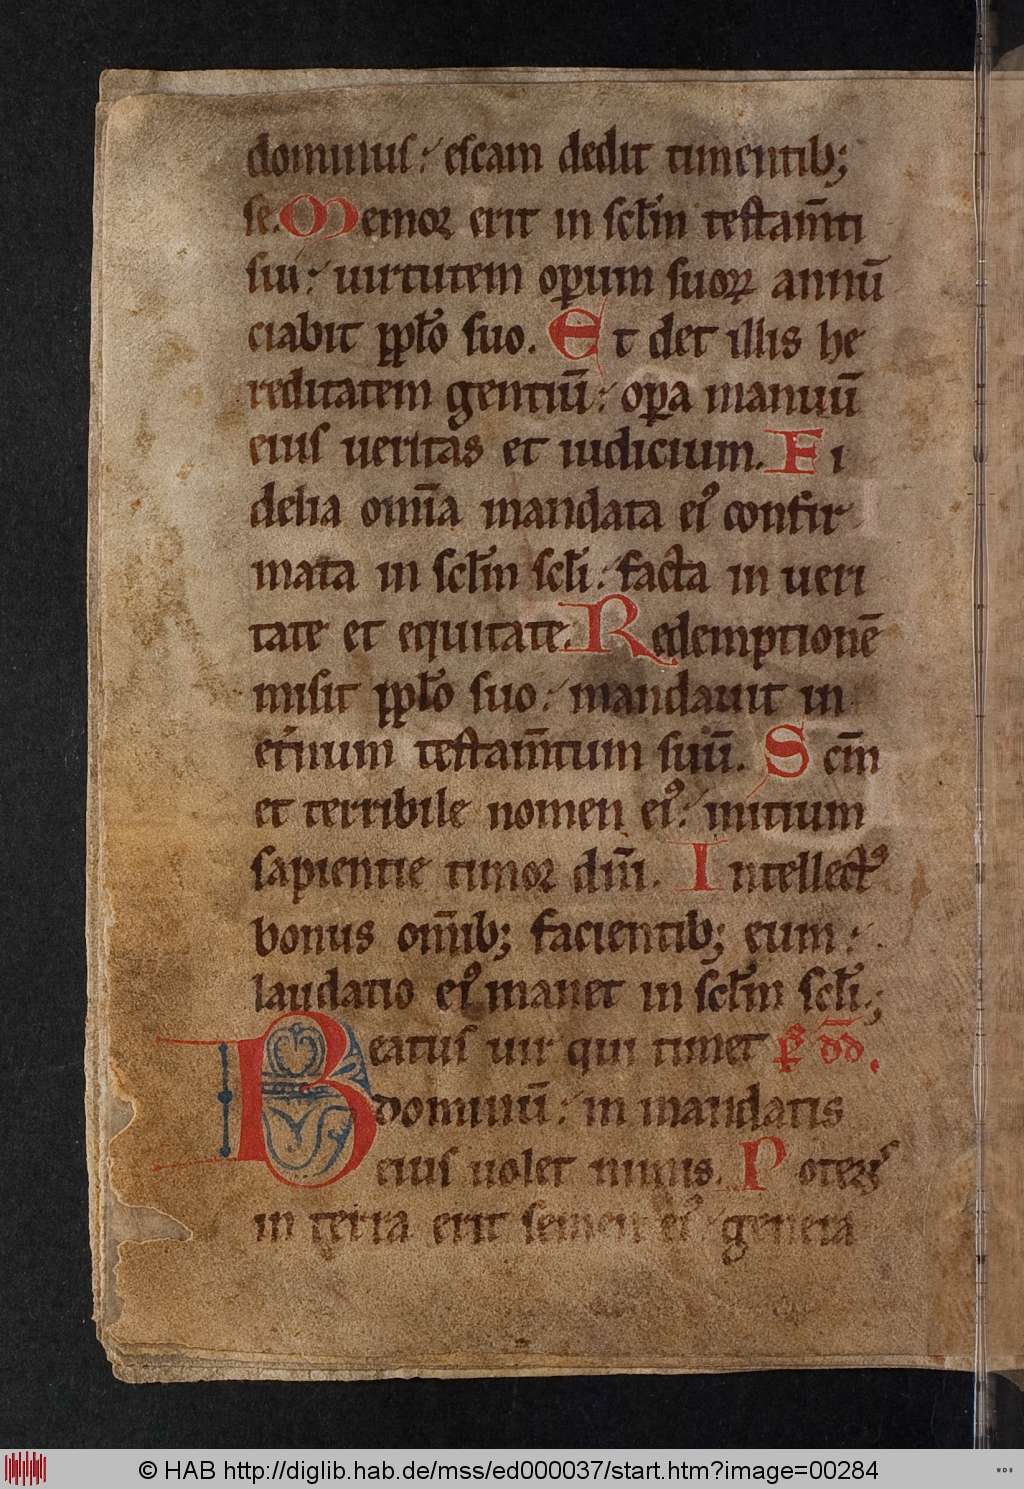 dominus escam dedit timentib;
se. Memor erit in sclm testamti
sui: uirtutem operum suorum annū
ciabit pplo suo. Et det illis he
reditatem gentiū: opera manuū
eius ueritas et iudicium. Fi
delia omīa mandata ei' confir
mata in sclm scli: facta in ueri
tate et equitate. Redemptionē
misit pplo suo: mandauit in
et'num testamtum suū. Scm
et terribile nomen ei': initium
sapientie timor dni. Intellect'
bonus omīb; facientib; eum:
laudatio ei' manet in sclm scli.;
Beatus uir qui timet ps dd.
dominū: in mandatis
eius uolet nimis. Potens
in terra erit semen ei': genera
© HAB http://diglib.hab.de/mss/ed000037/start.htm?image=00284